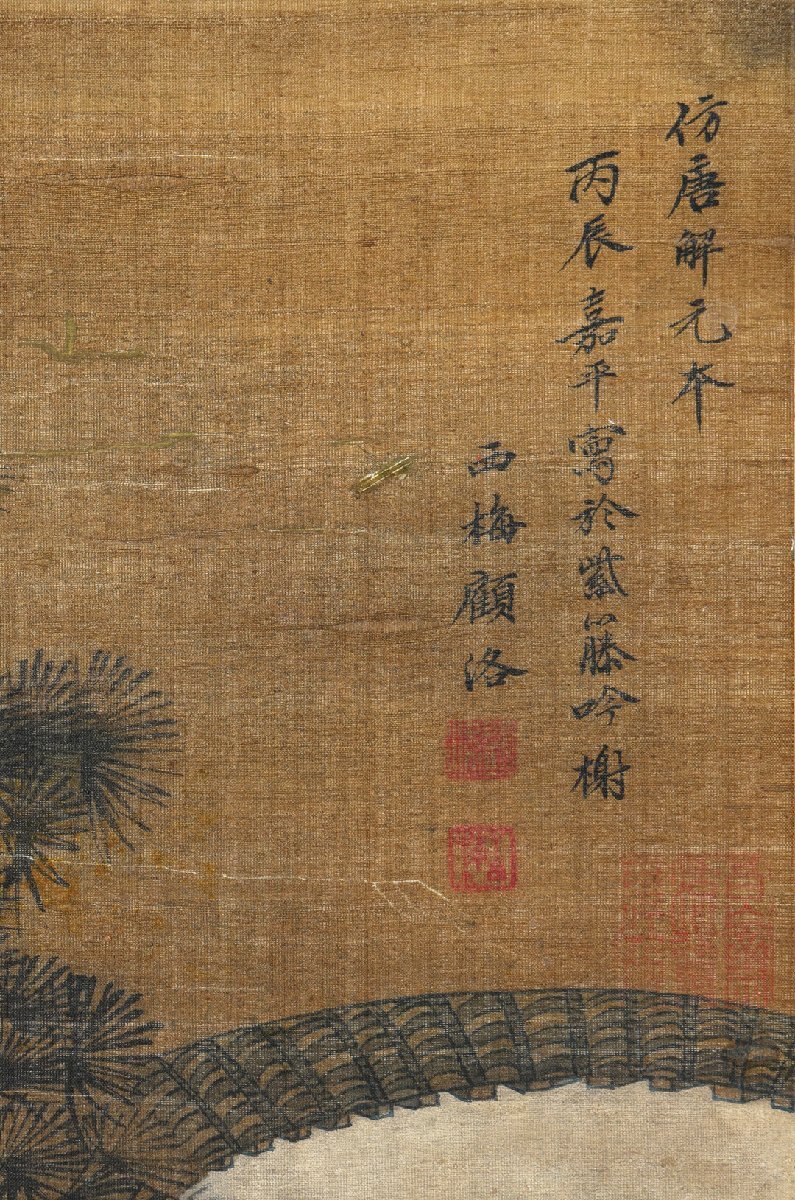 仿唐解元本
丙辰嘉平寫於紫藤吟榭
西梅顧洛